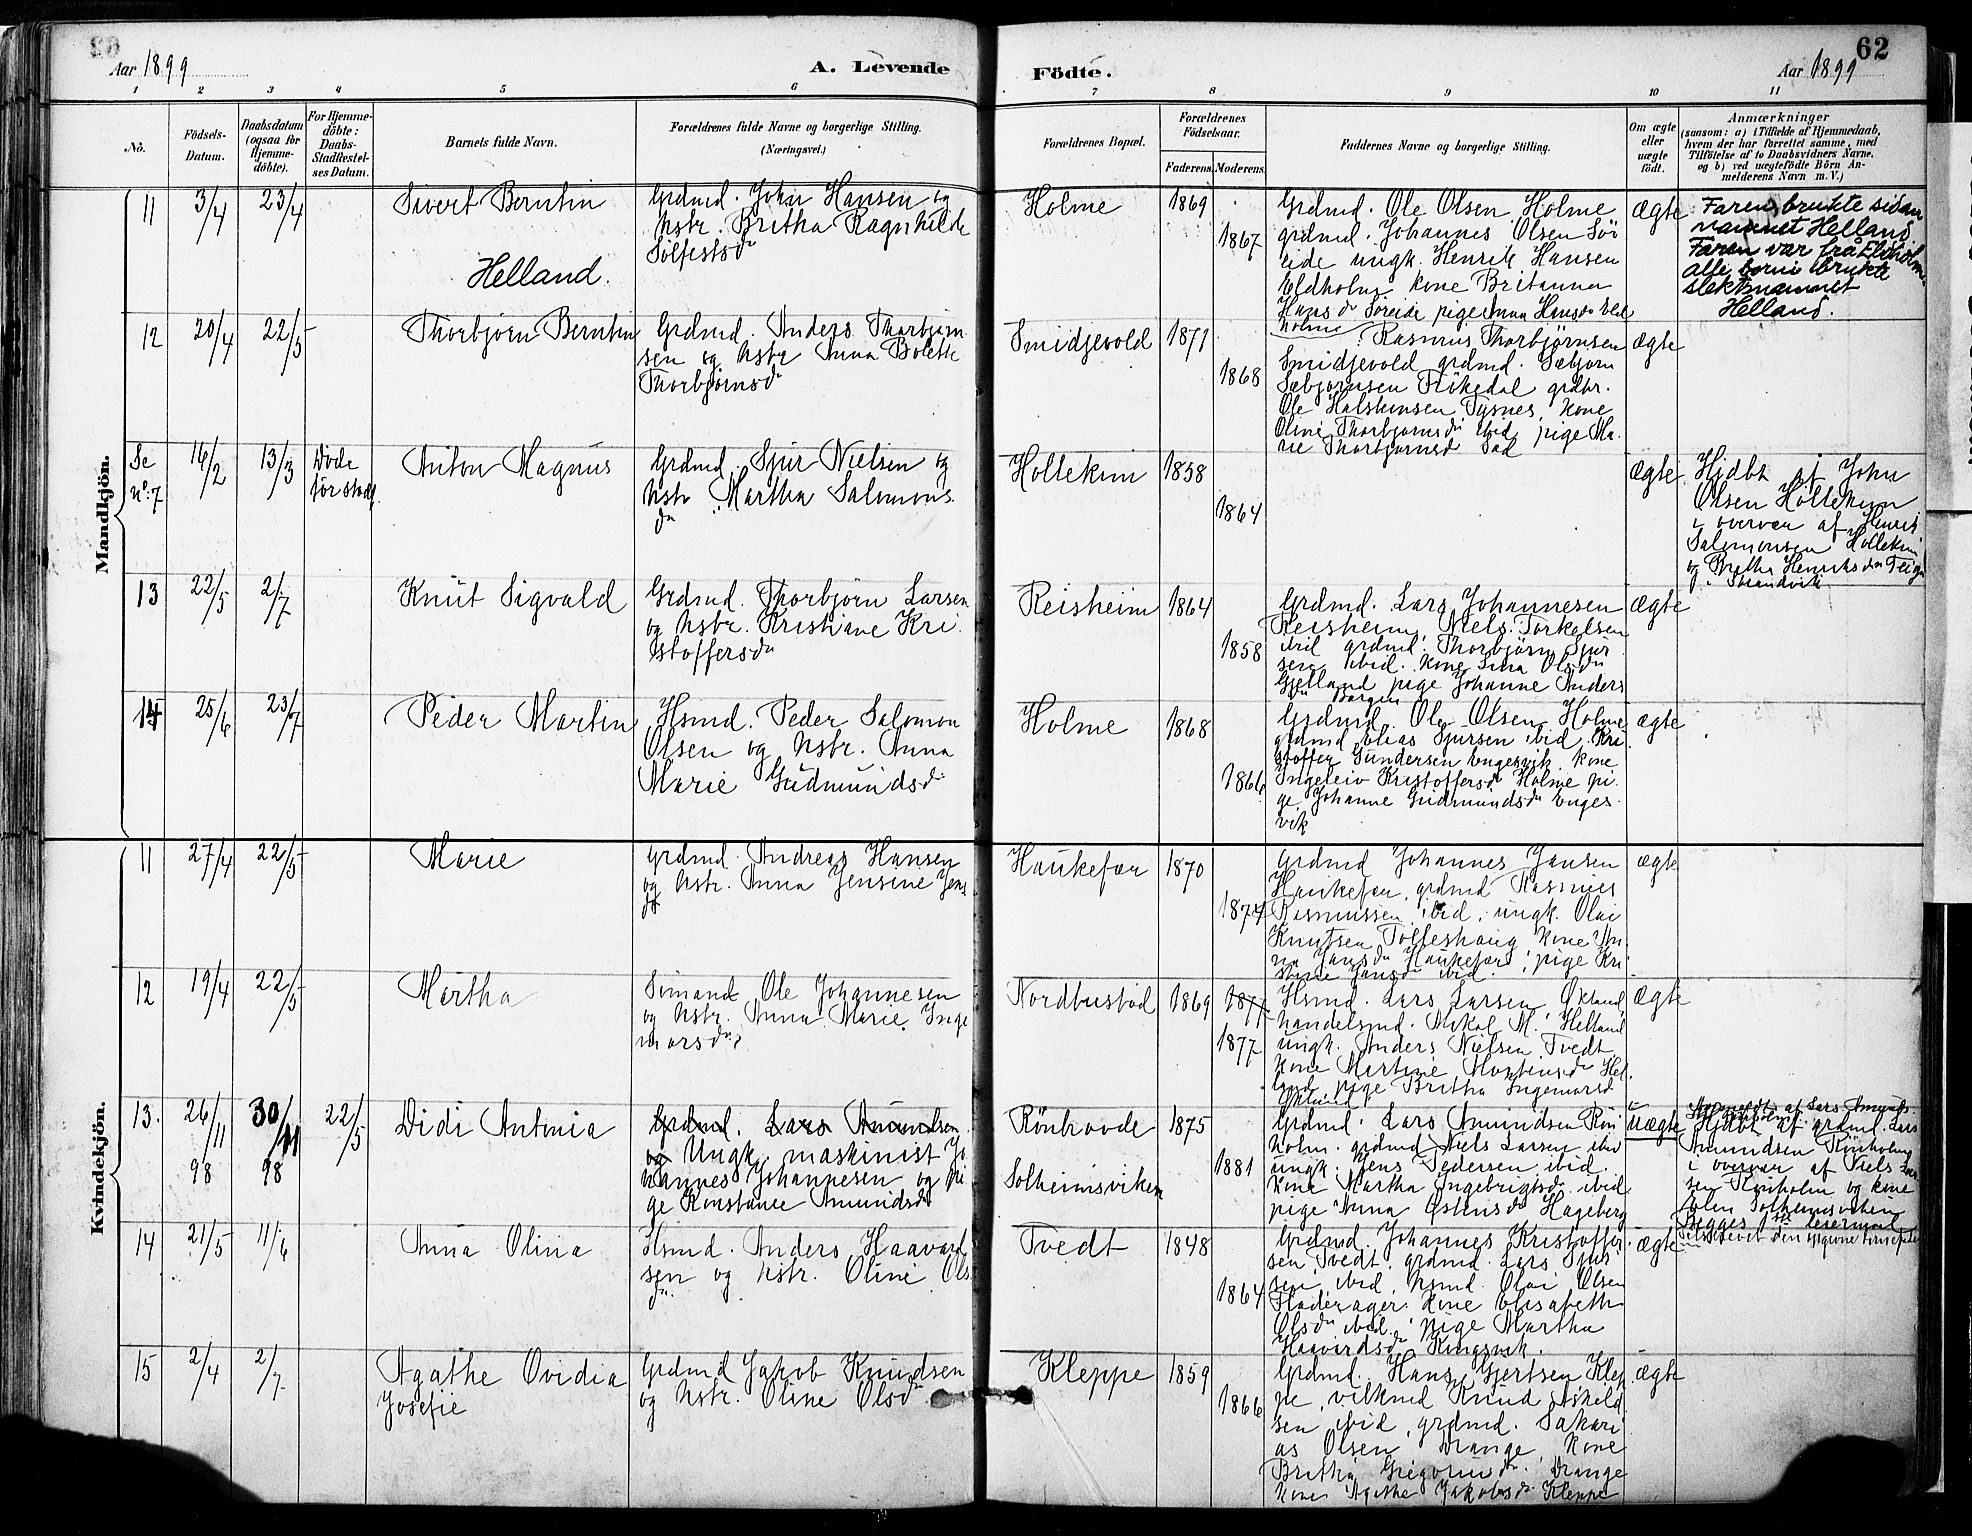 Aar 1899
A. Levende
Födte.
62
Aar 1899
1 2 3 4 5 6 7 8 9 10 11
No.
Födsels-
Datum.
Daabsdatum
(ogsaa for
Hjemme-
döbte).
For Hjemme-
döbte:
Daabs-
Stadfæstel-
ses Datum.
Barnets fulde Navn.
Forældrenes fulde Navne og borgerlige Stilling.
(Næringsvei.)
Forældrenes Bopæl.
Forældrenes
Födselsaar.
Faderens. Moderens.
Faddernes Navne og borgerlige Stilling.
Om ægte
eller
uægte
født.
Anmærkninger
(saasom: a) i Tilfælde af Hjemmedaab,
hvem der har forrettet samme, med
Tilföielse af to Daabsvidners Navne,
og b) ved uægtefödte Börn An-
melderens Navn m. V.)
Mandkjön.
11 3/4 23/4
Sivert Berntin
Helland.
Grdmd. John Hansen og
hstr. Britha Ragnhilde
Solfestsdr
Holme
1869
1867
Grdmd. Ole Olsen Holme
grdmd. Johannes Olsen Söi
eide ungk. Henrik Hansen
Eldholm kone Britanna
Hansdr Söreide pige Anna Hansdr Eld
holm
ægte
Faren brukte sidan
namnet Helland
Faren var frå Eldholm
alle borni brukte
slektsnamnet
Helland.
12 20/4 22/5
Thorbjörn Berntin
Grdmd. Anders Thorbjörn
sen og hstr Anna Bolette
Thorbjörnsdr
Smidjevold
1871
1868
Rasmus Thorbjörnsen
Smidjevold grdmd. Sæbjörn
Sæbjörnsen Flikedal grdbr.
Ole Halstensen Tysnes, kone
Oline Thorbjörnsdr ibid, pige Ma
rie Thorbjörnsdr
ægte
Se
no. 7
16/2 13/3
Döde
för stadf.
Anton Magnus
Grdmd. Sjur Nielsen og
hstr. Martha Salomons
dr
Hollekim
1858
1864
ægte
Hjdbt af John
Olsen Hollekim
i overvær af Henrik
Salomonsen Hollekim
og Britha Henriksdr Teige
i Strandvik
13 22/5 2/7
Knut Sigvald
Grdmd. Thorbjörn Larsen
og hstr. Kristiane Kri
stoffersdr
Reisheim
1864
1858
Grdmd. Lars Johannesen
Reisheim, Niels Torkelsen
ibid grdmd. Thorbjörn Sjur
sen ibid. kone Sina Olsdr
Gjelland pige Johanne Anders
dr Borgen
ægte
14 25/6 23/7
Peder Martin
Hsmd. Peder Salomon
Olsen og hstr. Anna
Marie Gudmundsdr
Holme
1868
1866
Grdmd. Ole Olsen Holme
grdmd Elias Sjursen ibid. Kri
stoffer Gundersen Engesvik kone
Ingeleiv Kristoffersdr Holme pi
ge Johanne Gudmundsdr Enges
vik
ægte
Kvindekjön.
11 27/4 22/5
Marie
Grdmd. Andreas Hansen
og hstr. Anna Jensine Jens
dr
Haukefær
1870
1874
Grdmd Johannes Jansen
Haukefær, grdmd Rasmus
Rasmussen ibid, ungk. Olai
Knutsen Tolleshaug kone An
na Jansdr Haukefær, pige Kri
stine Jansdr ibid.
ægte
12 19/4 22/5
Martha
Sömand Ole Johannesen
og hstr. Anna Marie Inge
marsdr
Nordbustöd
1869
1877
1877
Hsmd. Lars Larsen Økland,
handelsmd. Mikal M. Helland
ungk. Anders Nielsen Tvedt,
kone Martine Mortensdr Hel
land, pige Britha Ingemarsd
Økland
ægte
13. 26/11 98 30/11 98 22/5
Didi Antonia
Grdmd. Lars Amundsen
og Ungk. maskinist Jo
hannes Johannesen og pi
ge Konstance Amundsdr
Rönhovde
Solheimsviken
1875
1881
Grdmd. Lars Amundsen Rön
holm. grdmd Niels Larsen ibid
ungk. Jens Pedersen ibid.
kone Martha Ingebrigtsdr ibid
pige Anna Østensdr Hageberg
uægte
Anmeldt af Lars Amunds.
Hjdbt af grdmd. Lars
Amundsen Rönholm
i overvær af Niels Lar
sen Rönholm og kone
Elen Solheimsviken
Begges 1ste leiermaal
14 21/5 11/6
Anna Olina
Hsmd. Anders Haavard
sen og hstr. Oline Ols
dr
Tvedt
1848
1864
Grdmd. Johannes Kristoffer
sen Tvedt, grdmd. Lars Sjur
sen ibid, hsmd. Olai Olsen
Fladerager. kone Elisabeth
Olsdr ibid, pige Martha
Haavardsdr Kingsvik.
ægte
15 2/4 2/7
Agathe Ovidia
Josefie
Grdmd Jakob Knudsen
og hstr. Oline Olsdr
Kleppe
1859
1866
Grdmd. Hans Gjertsen Klep
pe, vilkmd Knud Askild
sen ibid, grdmd. Sakari
as Olsen Drange, kone
Britha Gregoriusdr Drange
kone Agathe Jakobsdr Kleppe
ægte